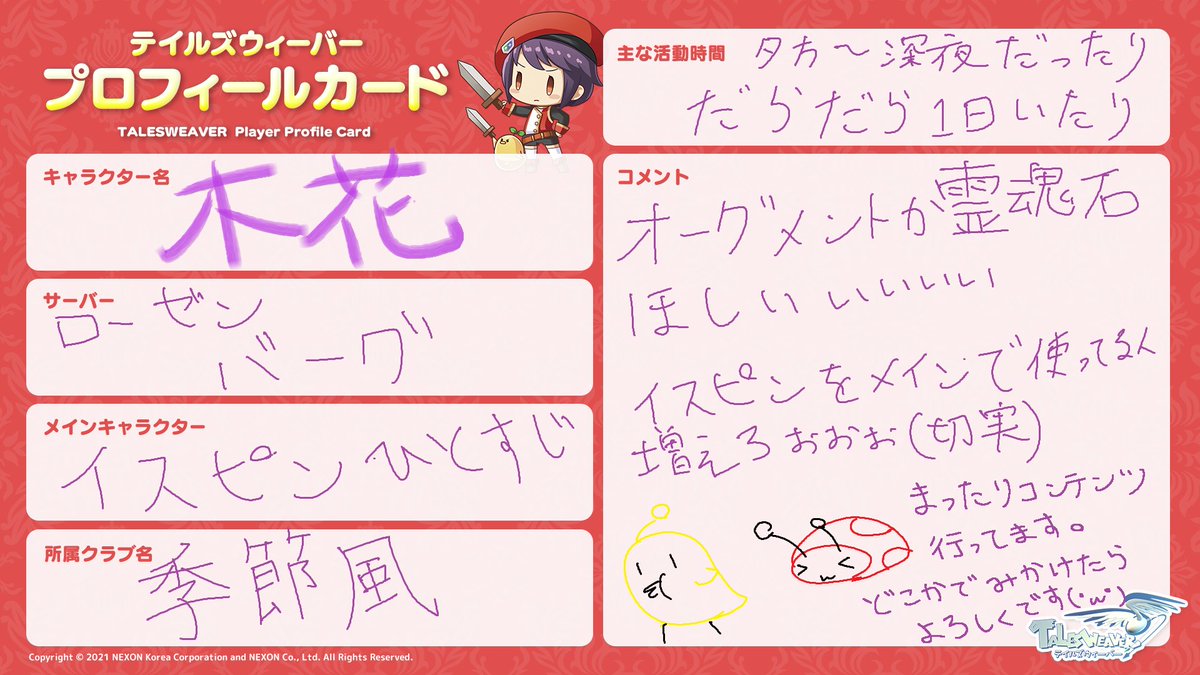 テイルズウィーバー
プロフィールカード
TALESWEAVER Player Profile Card
キャラクター名
木花
サーバー
ローゼン
バーグ
メインキャラクター
イスピンひとすじ
所属クラブ名
季節風
主な活動時間
夕方～深夜だったり
だらだら1日いたり
コメント
オーグメントか霊魂石
ほしいいいいい
イスピンをメインで使ってる人
増えろおおお(切実)
まったりコンテンツ
行ってます。
どこかでみかけたら
よろしくです(･ω･)
TALESWEAVER
テイルズウィーバー
Copyright © 2021 NEXON Korea Corporation and NEXON Co., Ltd. All Rights Reserved.